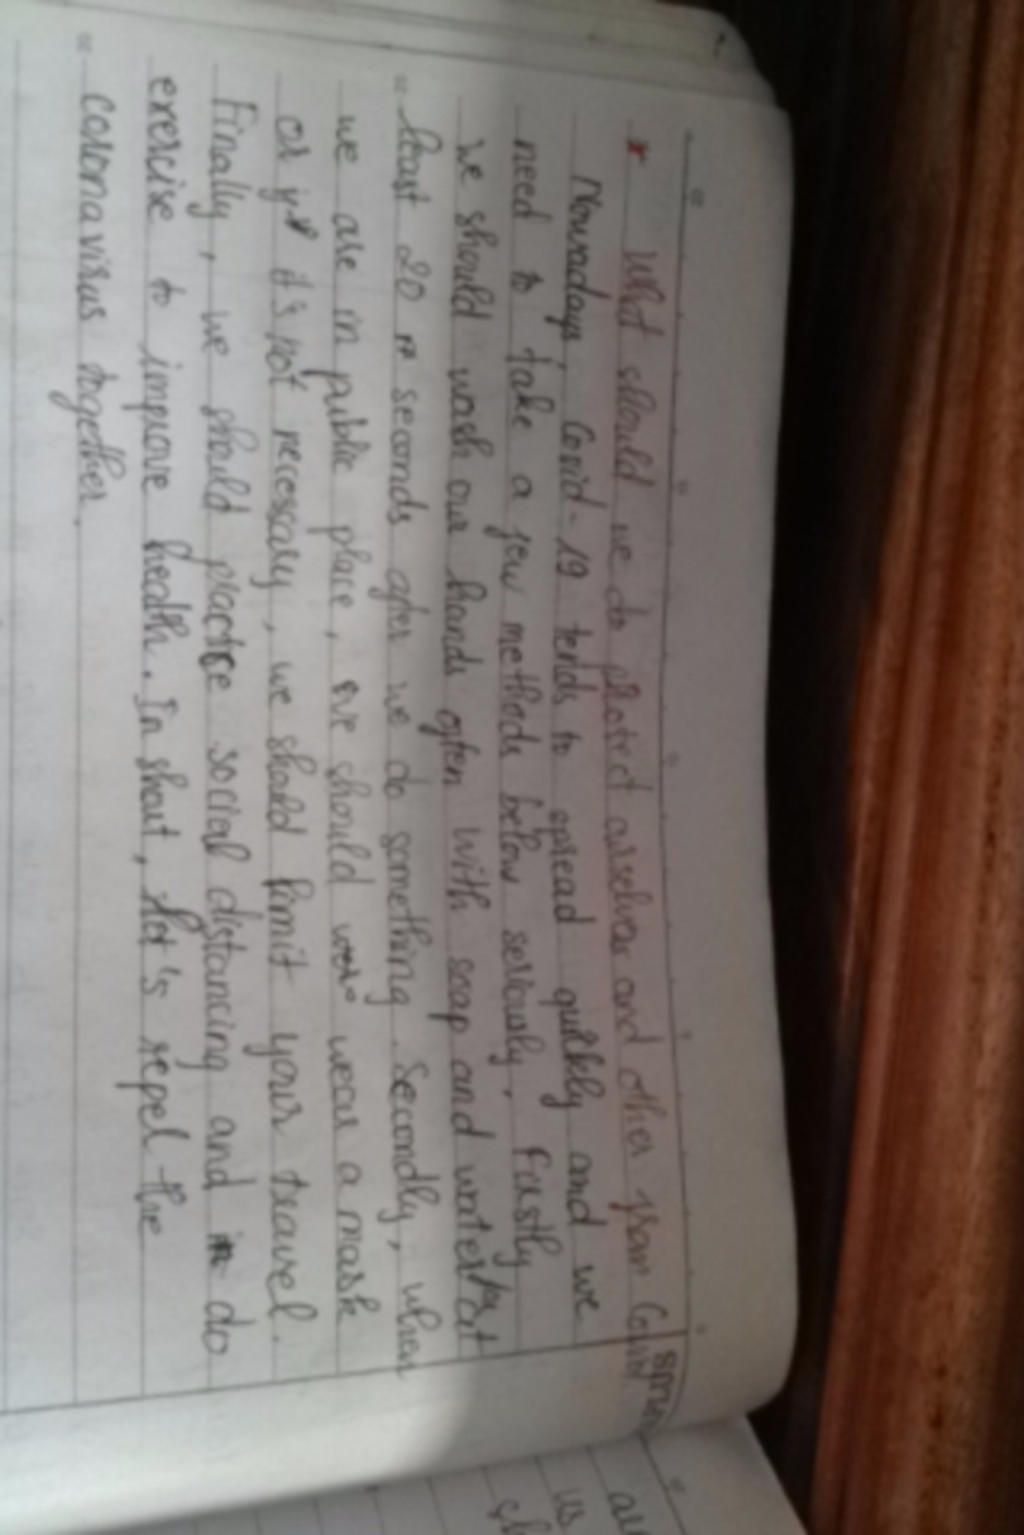 * What should we do protect ourselves and other from Covid
Nowadays, Covid-19 tends to spread quickly and we
need to take a few methods below seriously. Fistly
we should wash our hands often with soap and water at
least 20 seconds after we do something. Secondly, when
we are in public place, we should wear a mask
or if it's not necessary, we should limit your travel.
Finally, we should practice social distancing and do
exercise to improve health. In short, let's repel the
coronavirus together.